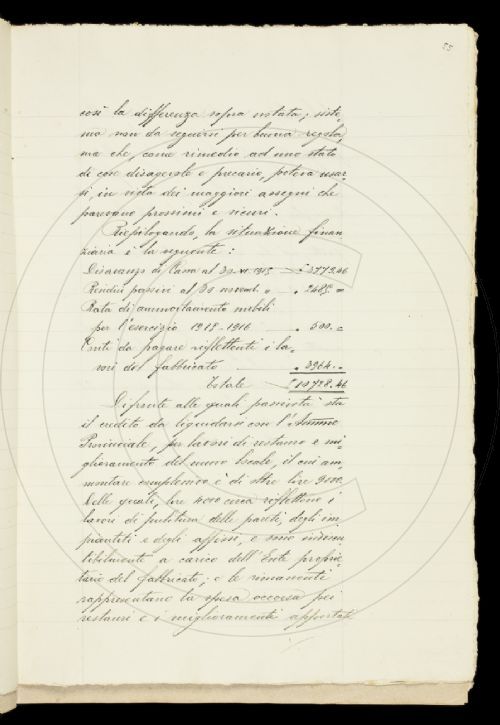 55
così la differenza sopra notata; siste=
ma non da seguirsi per buona regola,
ma che, come rimedio ad uno stato
di cose disagevole e precario, poteva usar
si, in vista dei maggiori assegni che
parevano prossimi e sicuri.
Riepilogando, la situazione finan
ziaria è la seguente:
Disavanzo di Cassa al 30 XI 1915 £ 3779.46
Residui passivi al 30 novemb. " " 2485. =
Rata di ammortamento mobili
per l'esercizio 1915-1916 " 500. =
Conti da pagare riflettenti i la=
vori del fabbricato " 3964. "
Totale £ 10728.46
Di fronte alle quali passività sta
il credito da liquidarsi con l'Ammne
Provinciale, per lavori di restauro e mi=
glioramento del nuovo locale, il cui am
montare complessivo è di oltre lire 9000.
Delle quali, lire 4000 circa riflettono i
lavori di pulitura delle pareti, degli im
piantiti e degli affissi, e sono indiscu
tibilmente a carico dell'Ente proprie
tario del fabbricato; e le rimanenti
rappresentano la spesa occorsa pei
restauri e i miglioramenti apportati